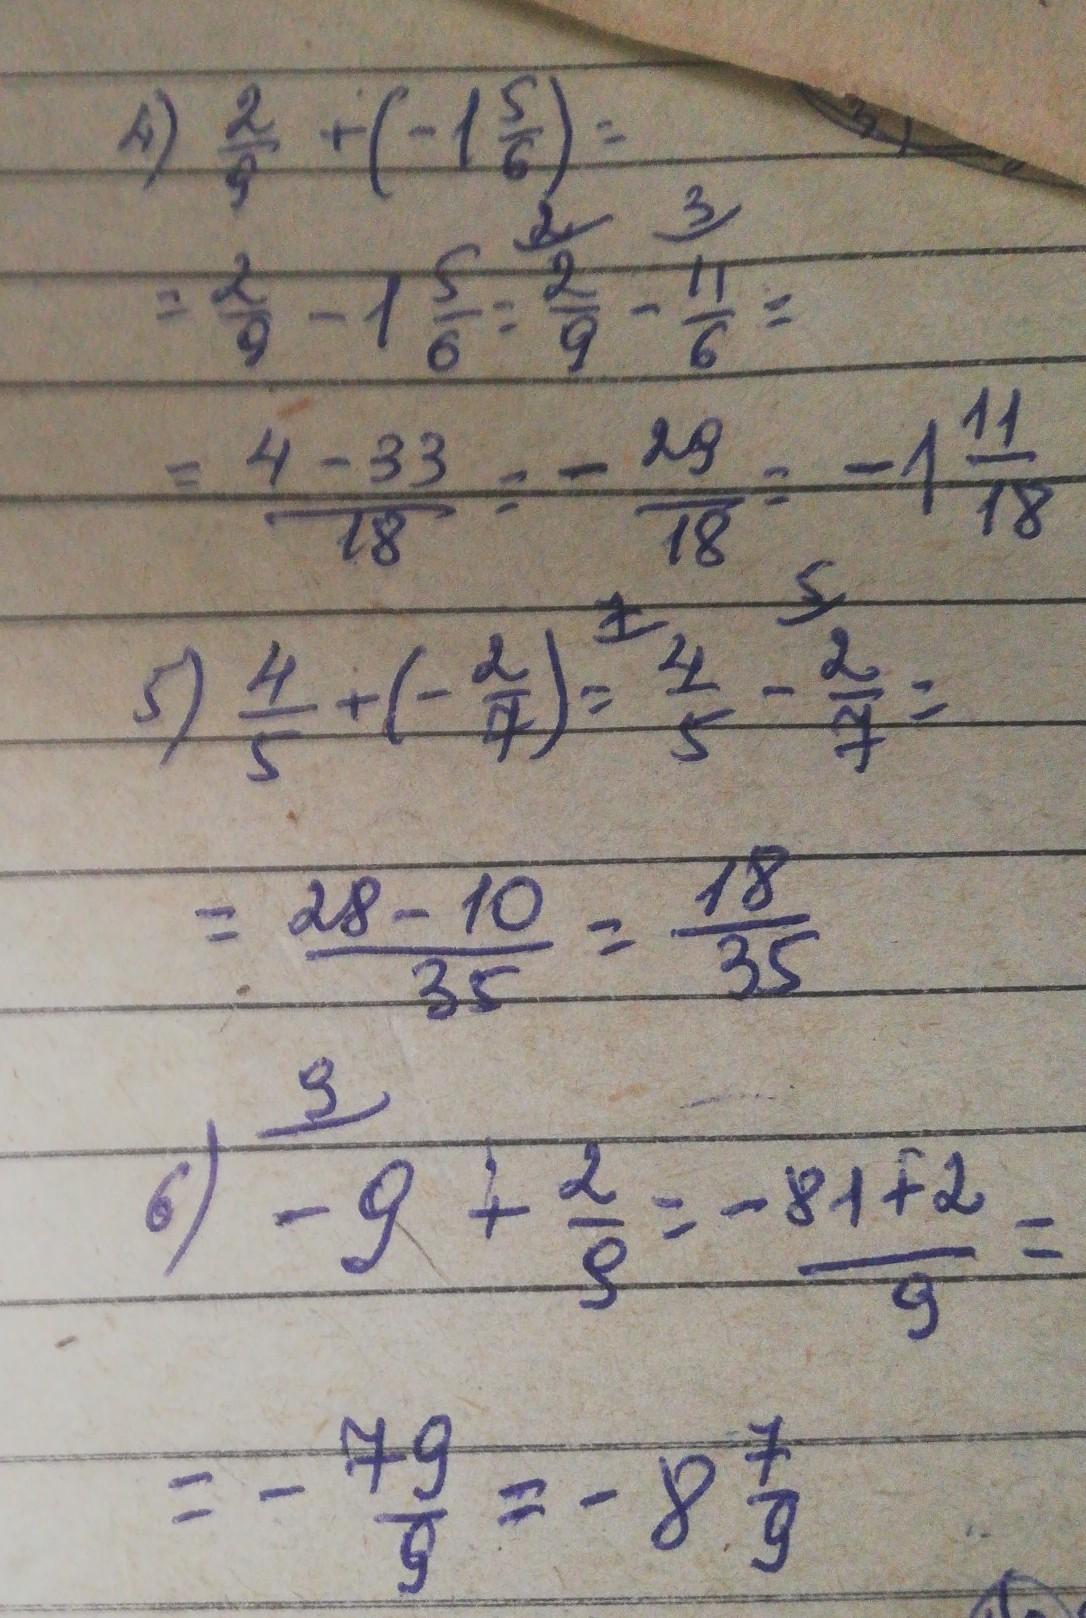 4) 2/9 + (-1 5/6) =
2 3
= 2/9 - 1 5/6 = 2/9 - 11/6 =
= 4-33/18 = - 29/18 = -1 11/18
7 5
5) 4/5 + (- 2/7) = 4/5 - 2/7 =
= 28-10/35 = 18/35
9
6) -9 + 2/9 = -81+2/9 =
= - 79/9 = -8 7/9